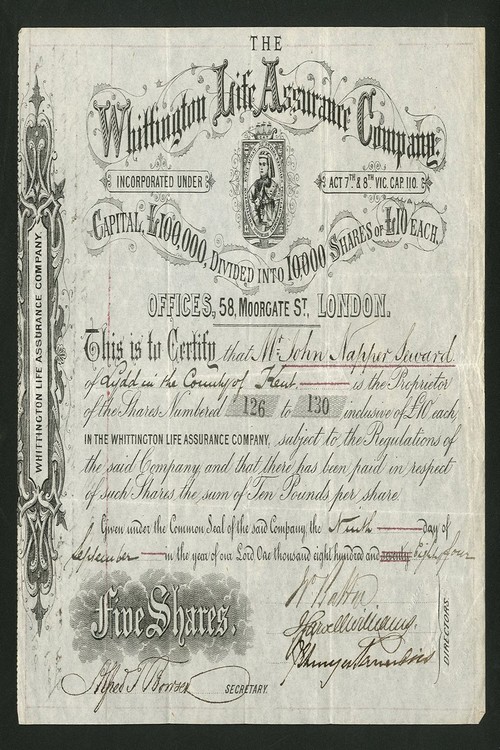 THE
Whittington Life Assurance Company.
INCORPORATED UNDER ACT 7TH & 8TH VIC. CAP. 110.
CAPITAL, £100,000, DIVIDED INTO 10,000 SHARES OF £10 EACH.
OFFICES, 58, MOORGATE ST, LONDON.
This is to Certify that Mr. John Napper Seward
of Lydd in the County of Kent. is the Proprietor
of the Shares Numbered 126 to 130 inclusive of £10 each,
IN THE WHITTINGTON LIFE ASSURANCE COMPANY, subject to the Regulations of
the said Company, and that there has been paid in respect
of such Shares the sum of Ten Pounds per share.
Given under the Common Seal of the said Company, the Ninth day of
September in the year of our Lord One thousand eight hundred and Eighty four
Five Shares.
Alfred T Bowser SECRETARY.
DIRECTORS.
WHITTINGTON LIFE ASSURANCE COMPANY.